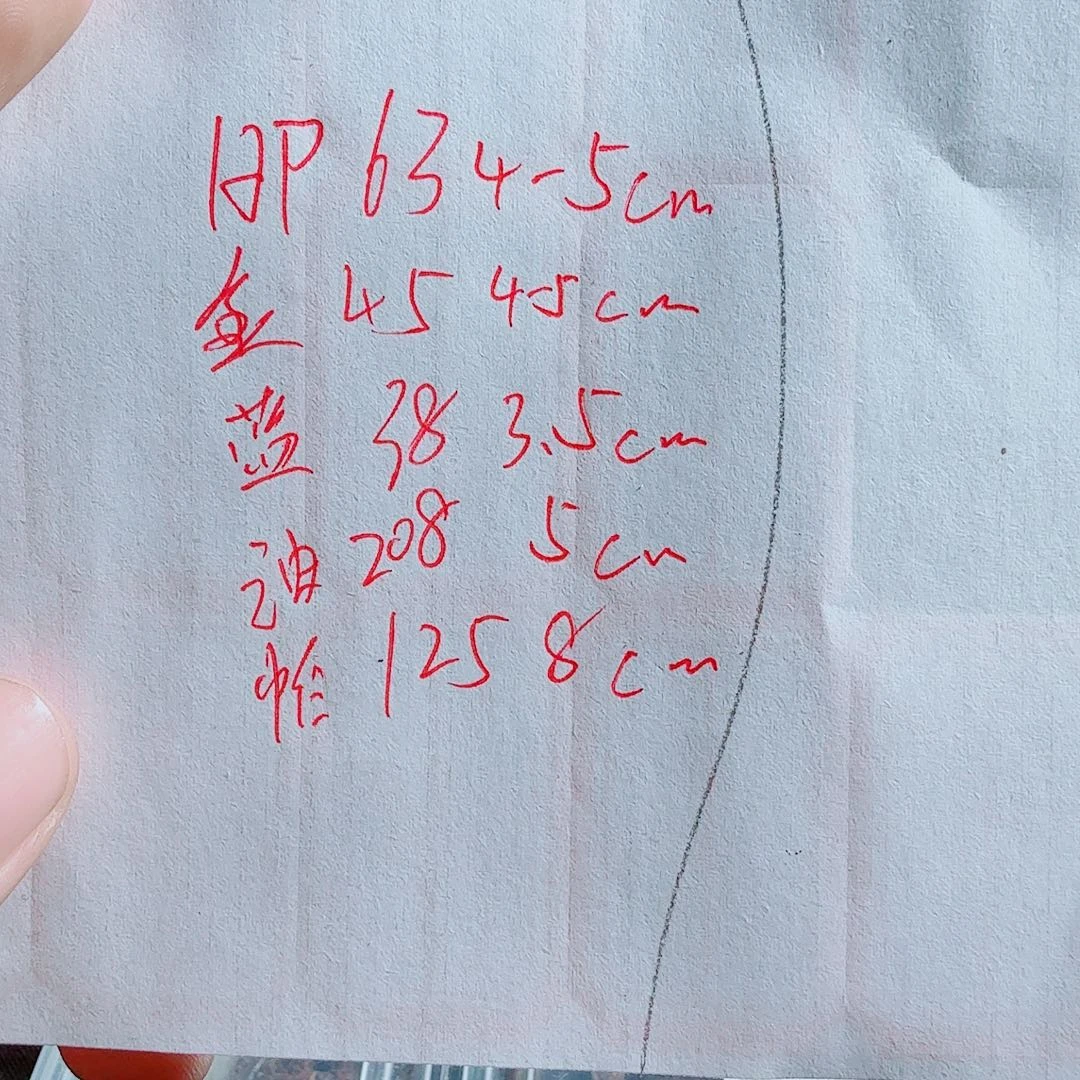 印 63 4-5cm
金 45 4-5cm
蓝 38 3.5cm
迪 208 5cm
帕 125 8cm